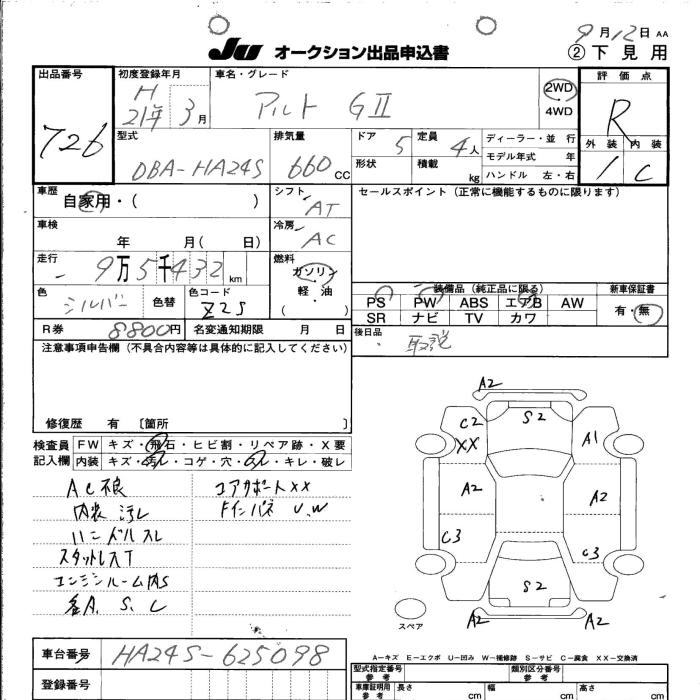 9月12日 AA
JU オークション出品申込書
② 下見用
出品番号
726
初度登録年月
H
21年 3月
車名・グレード
アルト GⅡ
2WD
4WD
評価点
R
外装 内装
1 C
型式
DBA-HA24S
排気量
660 cc
ドア 5
形状
定員 4人
積載 kg
ディーラー・並行
モデル年式 年
ハンドル 左・右
車歴
自家用・( )
シフト
AT
セールスポイント(正常に機能するものに限ります)
車検
年 月( 日)
冷房
AC
走行
9万5千432km
燃料
ガソリン
軽・油
( )
色
シルバー
色替
色コード
Z2S
装備品(純正品に限る)
PS PW ABS エアB AW
SR ナビ TV カワ
新車保証書
有・無
R券 8800円
名変通知期限 月 日
後日品
取説
注意事項申告欄(不具合内容等は具体的に記入してください)
修復歴 有 〔箇所 〕
検査員
記入欄
FW キズ・飛石・ヒビ割・リペア跡・X要
内装 キズ・汚レ・コゲ・穴・スレ・キレ・破レ
AC不良
内装 汚レ
ハンドルスレ
スタットレスT
エンジンルーム内S
各A. S. U
コアサポートXX
Fインパネ U.W
A2
C2
XX
S2
A1
A2
A2
C3
C3
S2
A2
A2
スペア
A-キズ E-エクボ U-凹み W-補修跡 S-サビ C-腐食 XX-交換済
車台番号 HA24S-625098
登録番号
型式指定番号
参考
類別区分番号
参考
車庫証明用
参考
長さ cm
幅 cm
高さ cm